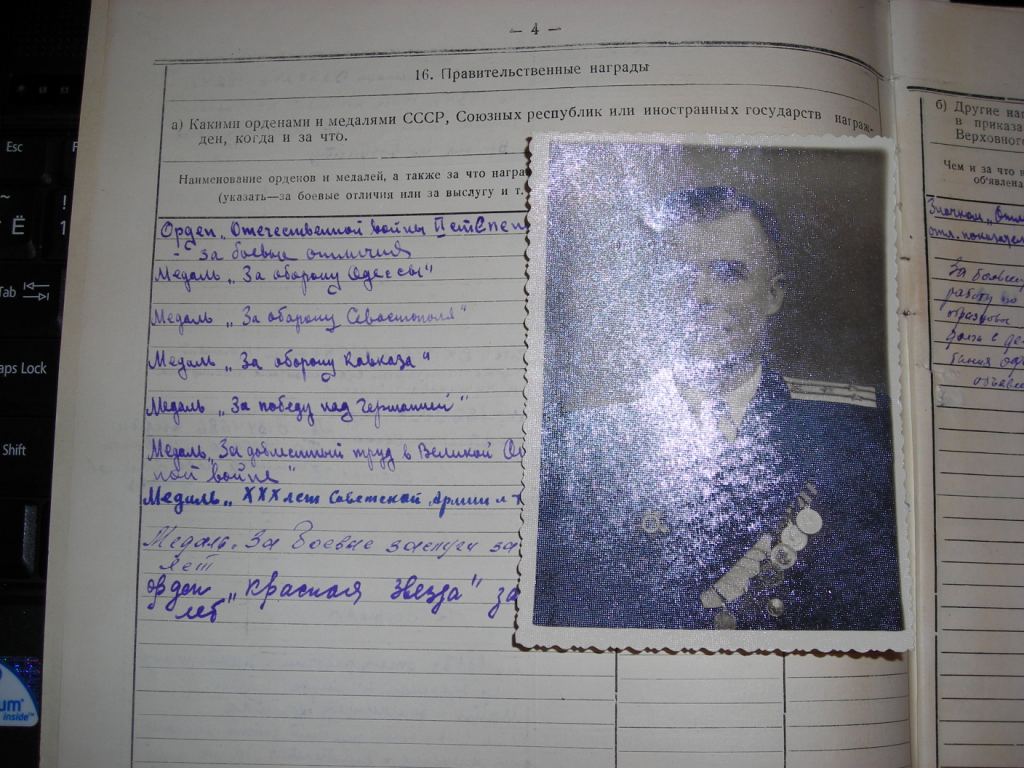 — 4 —
16. Правительственные награды
а) Какими орденами и медалями СССР, Союзных республик или иностранных государств награж-
ден, когда и за что.
Наименование орденов и медалей, а также за что награ
(указать—за боевые отличия или за выслугу и т.
Орден „Отечественной войны II
- за боевые отличия
Медаль „За оборону Одессы"
Медаль „За оборону Севастополя"
Медаль „За оборону Кавказа"
Медаль „За победу над Германией"
Медаль „За доблестный труд в Великой От
ной войне"
Медаль „XXX лет Советской Армии и
Медаль „За боевые заслуги за
лет
орден „Красная Звезда" за
лет
б) Другие наг
в приказа
Верховного
Чем и за что н
объявлена
Значком „Отли
отл. показател
За
работу по
объявле
Esc
Ё
!
1
Tab
aps Lock
Shift
um
inside™